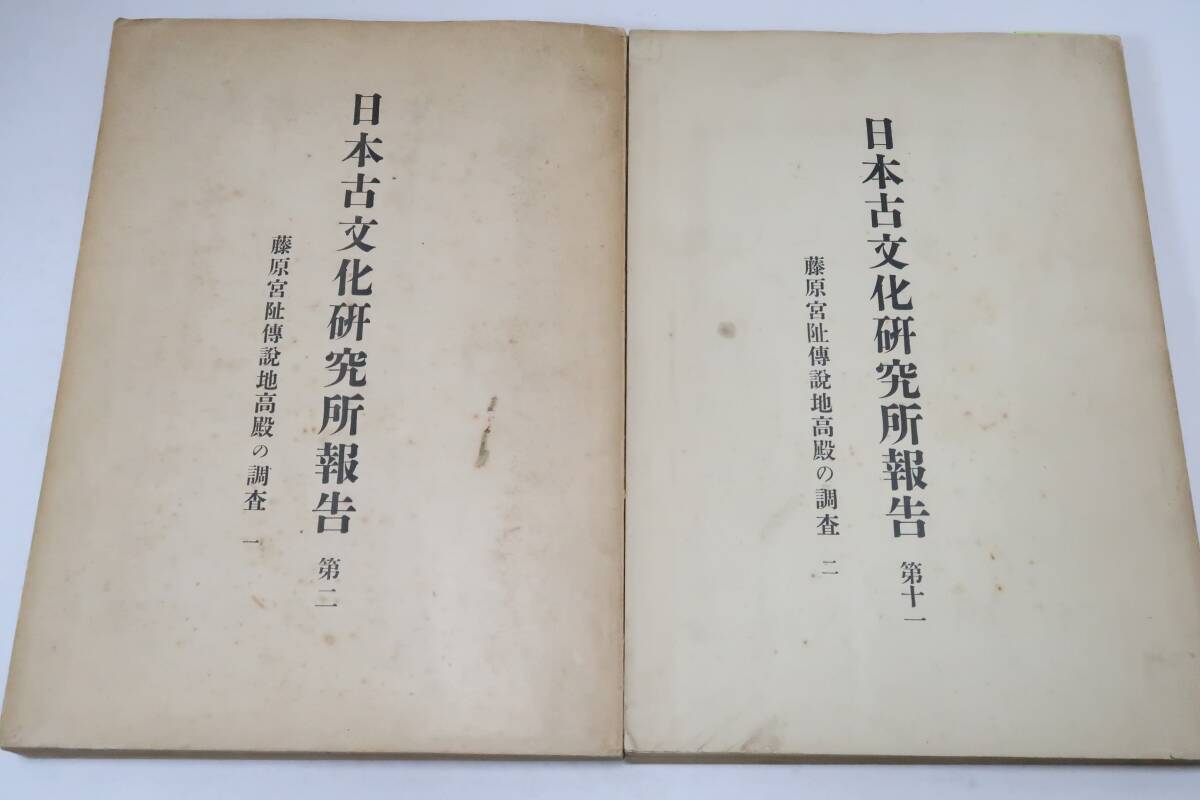 日本古文化硏究所報告 第二
藤原宮阯傳說地高殿の調査 一
日本古文化硏究所報告 第十一
藤原宮阯傳說地高殿の調査 二